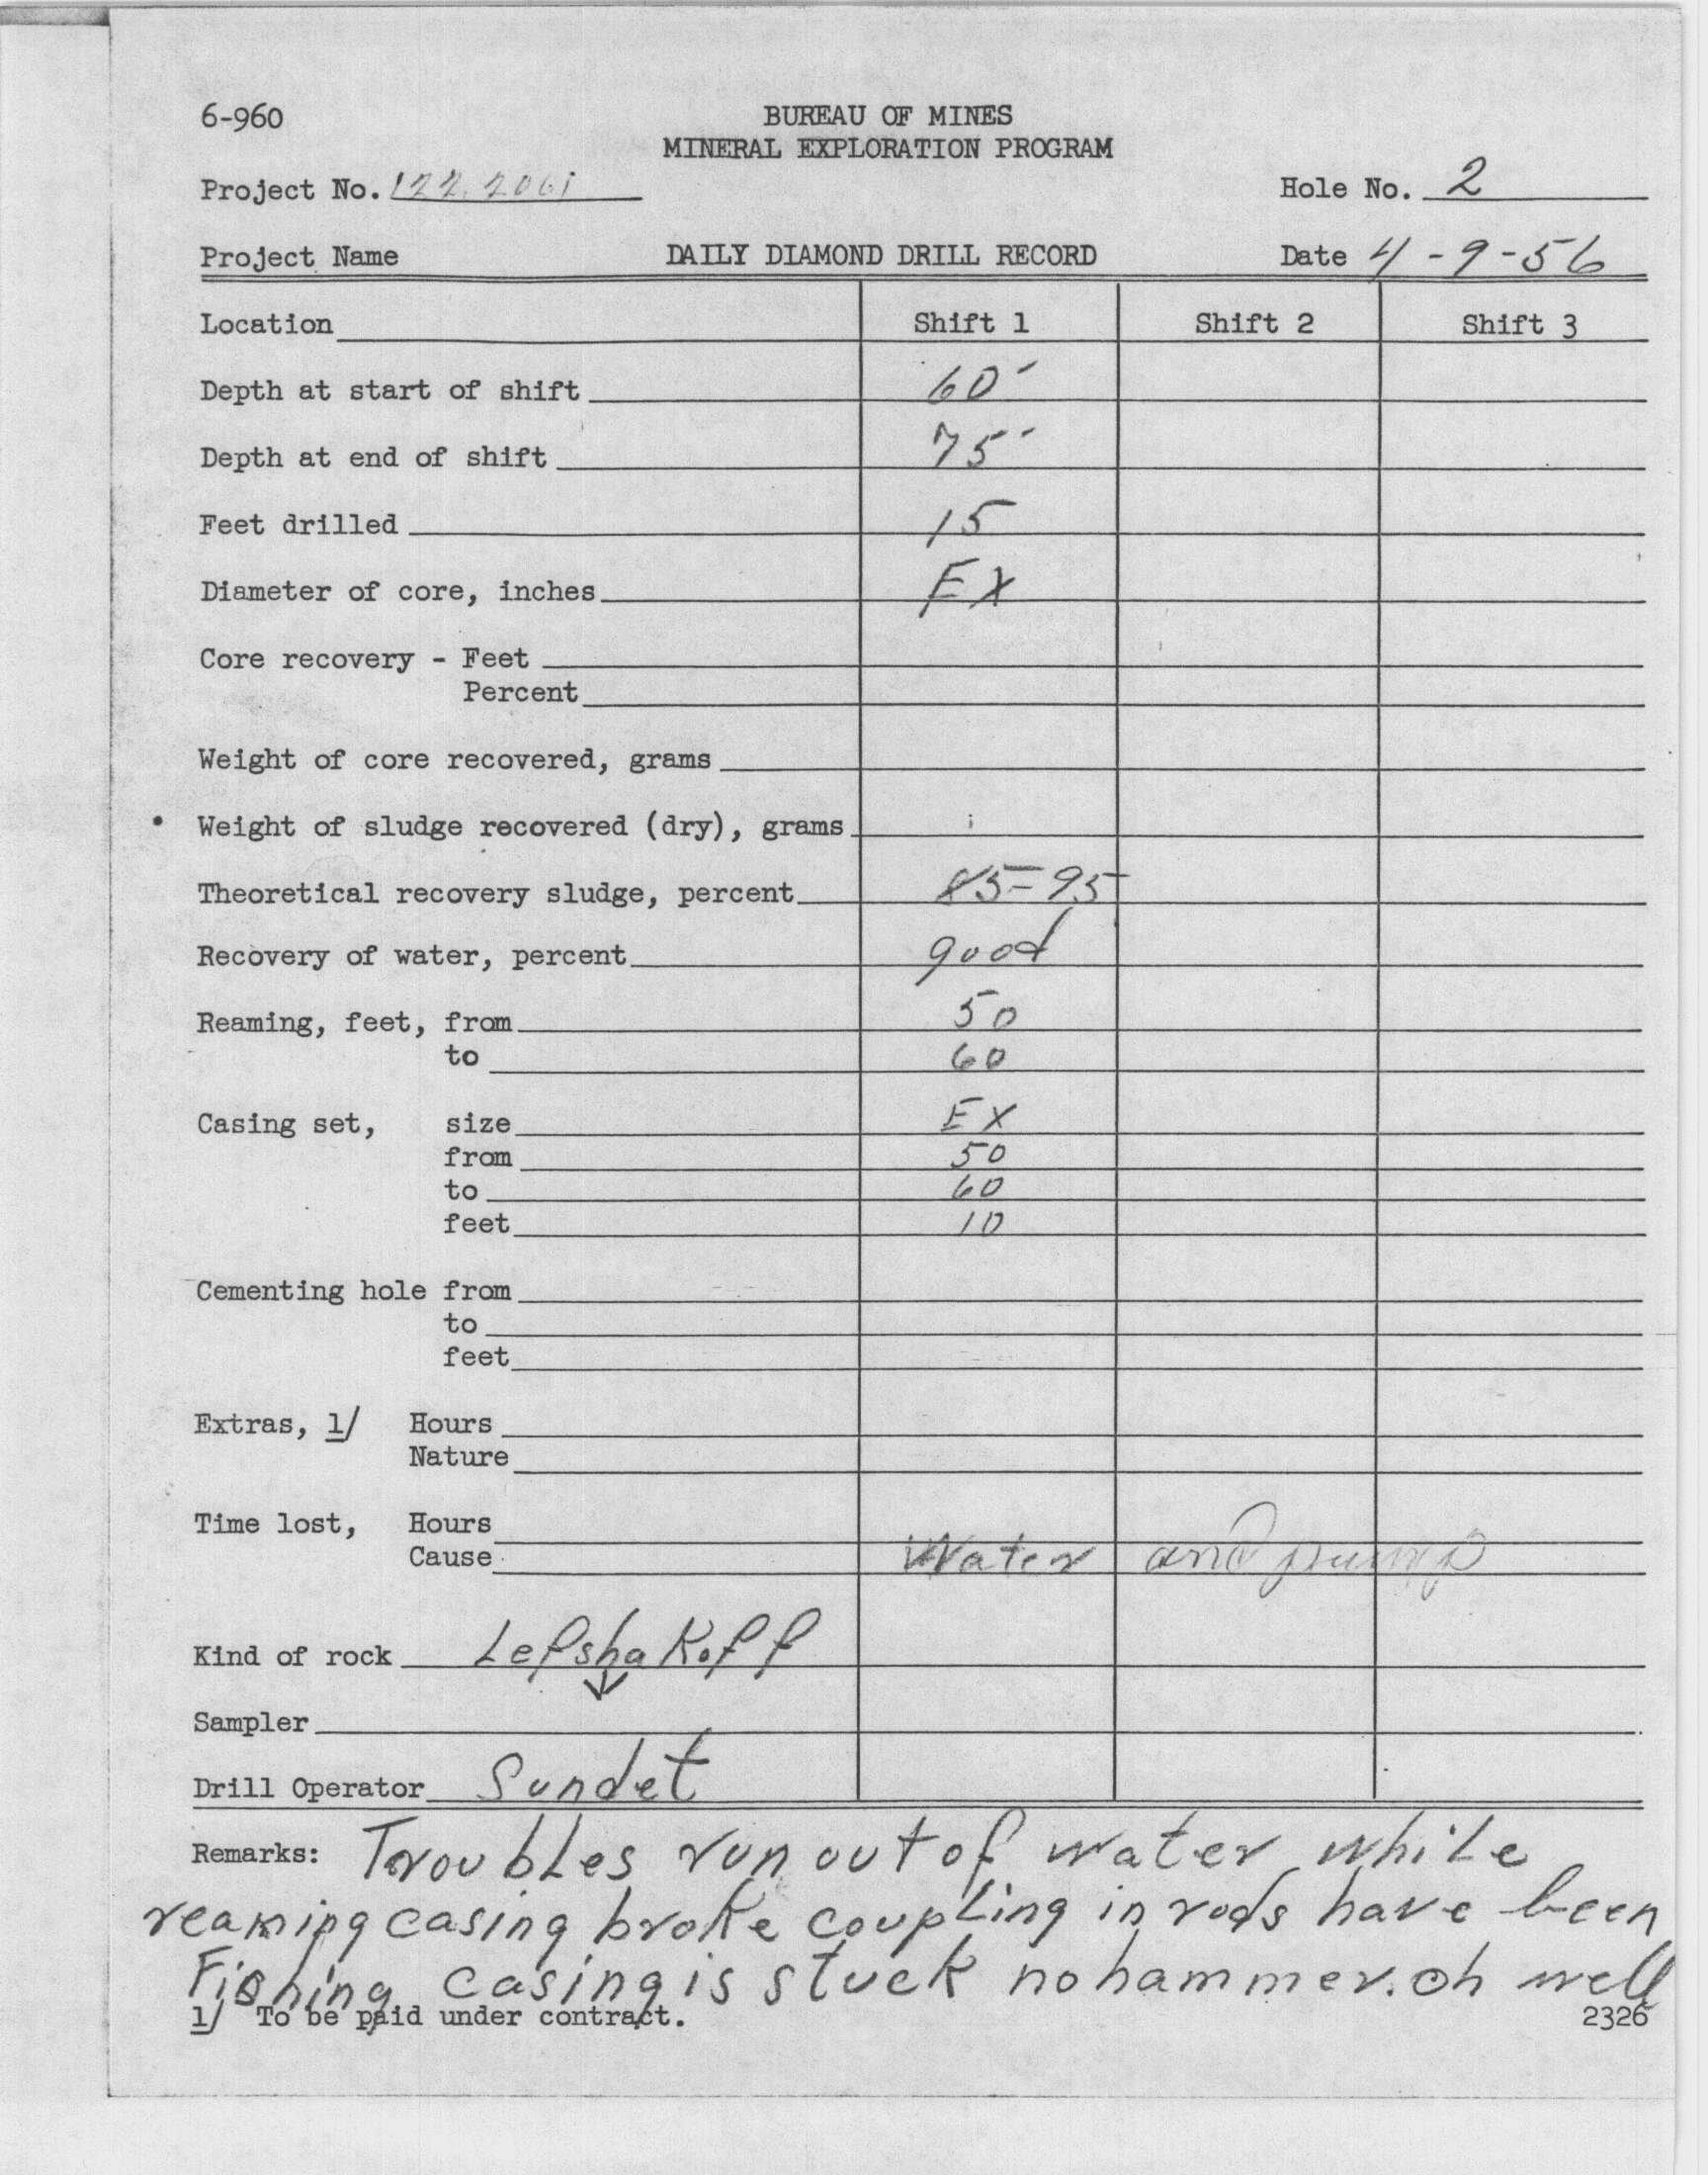 6-960
BUREAU OF MINES
MINERAL EXPLORATION PROGRAM
Project No. 122.2061
Hole No. 2
Project Name
DAILY DIAMOND DRILL RECORD
Date 4-9-56
Location Shift 1 Shift 2 Shift 3
Depth at start of shift 60'
Depth at end of shift 75'
Feet drilled 15
Diameter of core, inches EX
Core recovery - Feet
Percent
Weight of core recovered, grams
Weight of sludge recovered (dry), grams
Theoretical recovery sludge, percent 85-95
Recovery of water, percent good
Reaming, feet, from 50
to 60
Casing set, size EX
from 50
to 60
feet 10
Cementing hole from
to
feet
Extras, 1/ Hours
Nature
Time lost, Hours
Cause Water and pump
Kind of rock Lefshakoff
Sampler
Drill Operator Sundet
Remarks: Troubles run out of water while
reaming casing broke coupling in rods have been
Fishing casing is stuck no hammer. oh well
1/ To be paid under contract.
2326